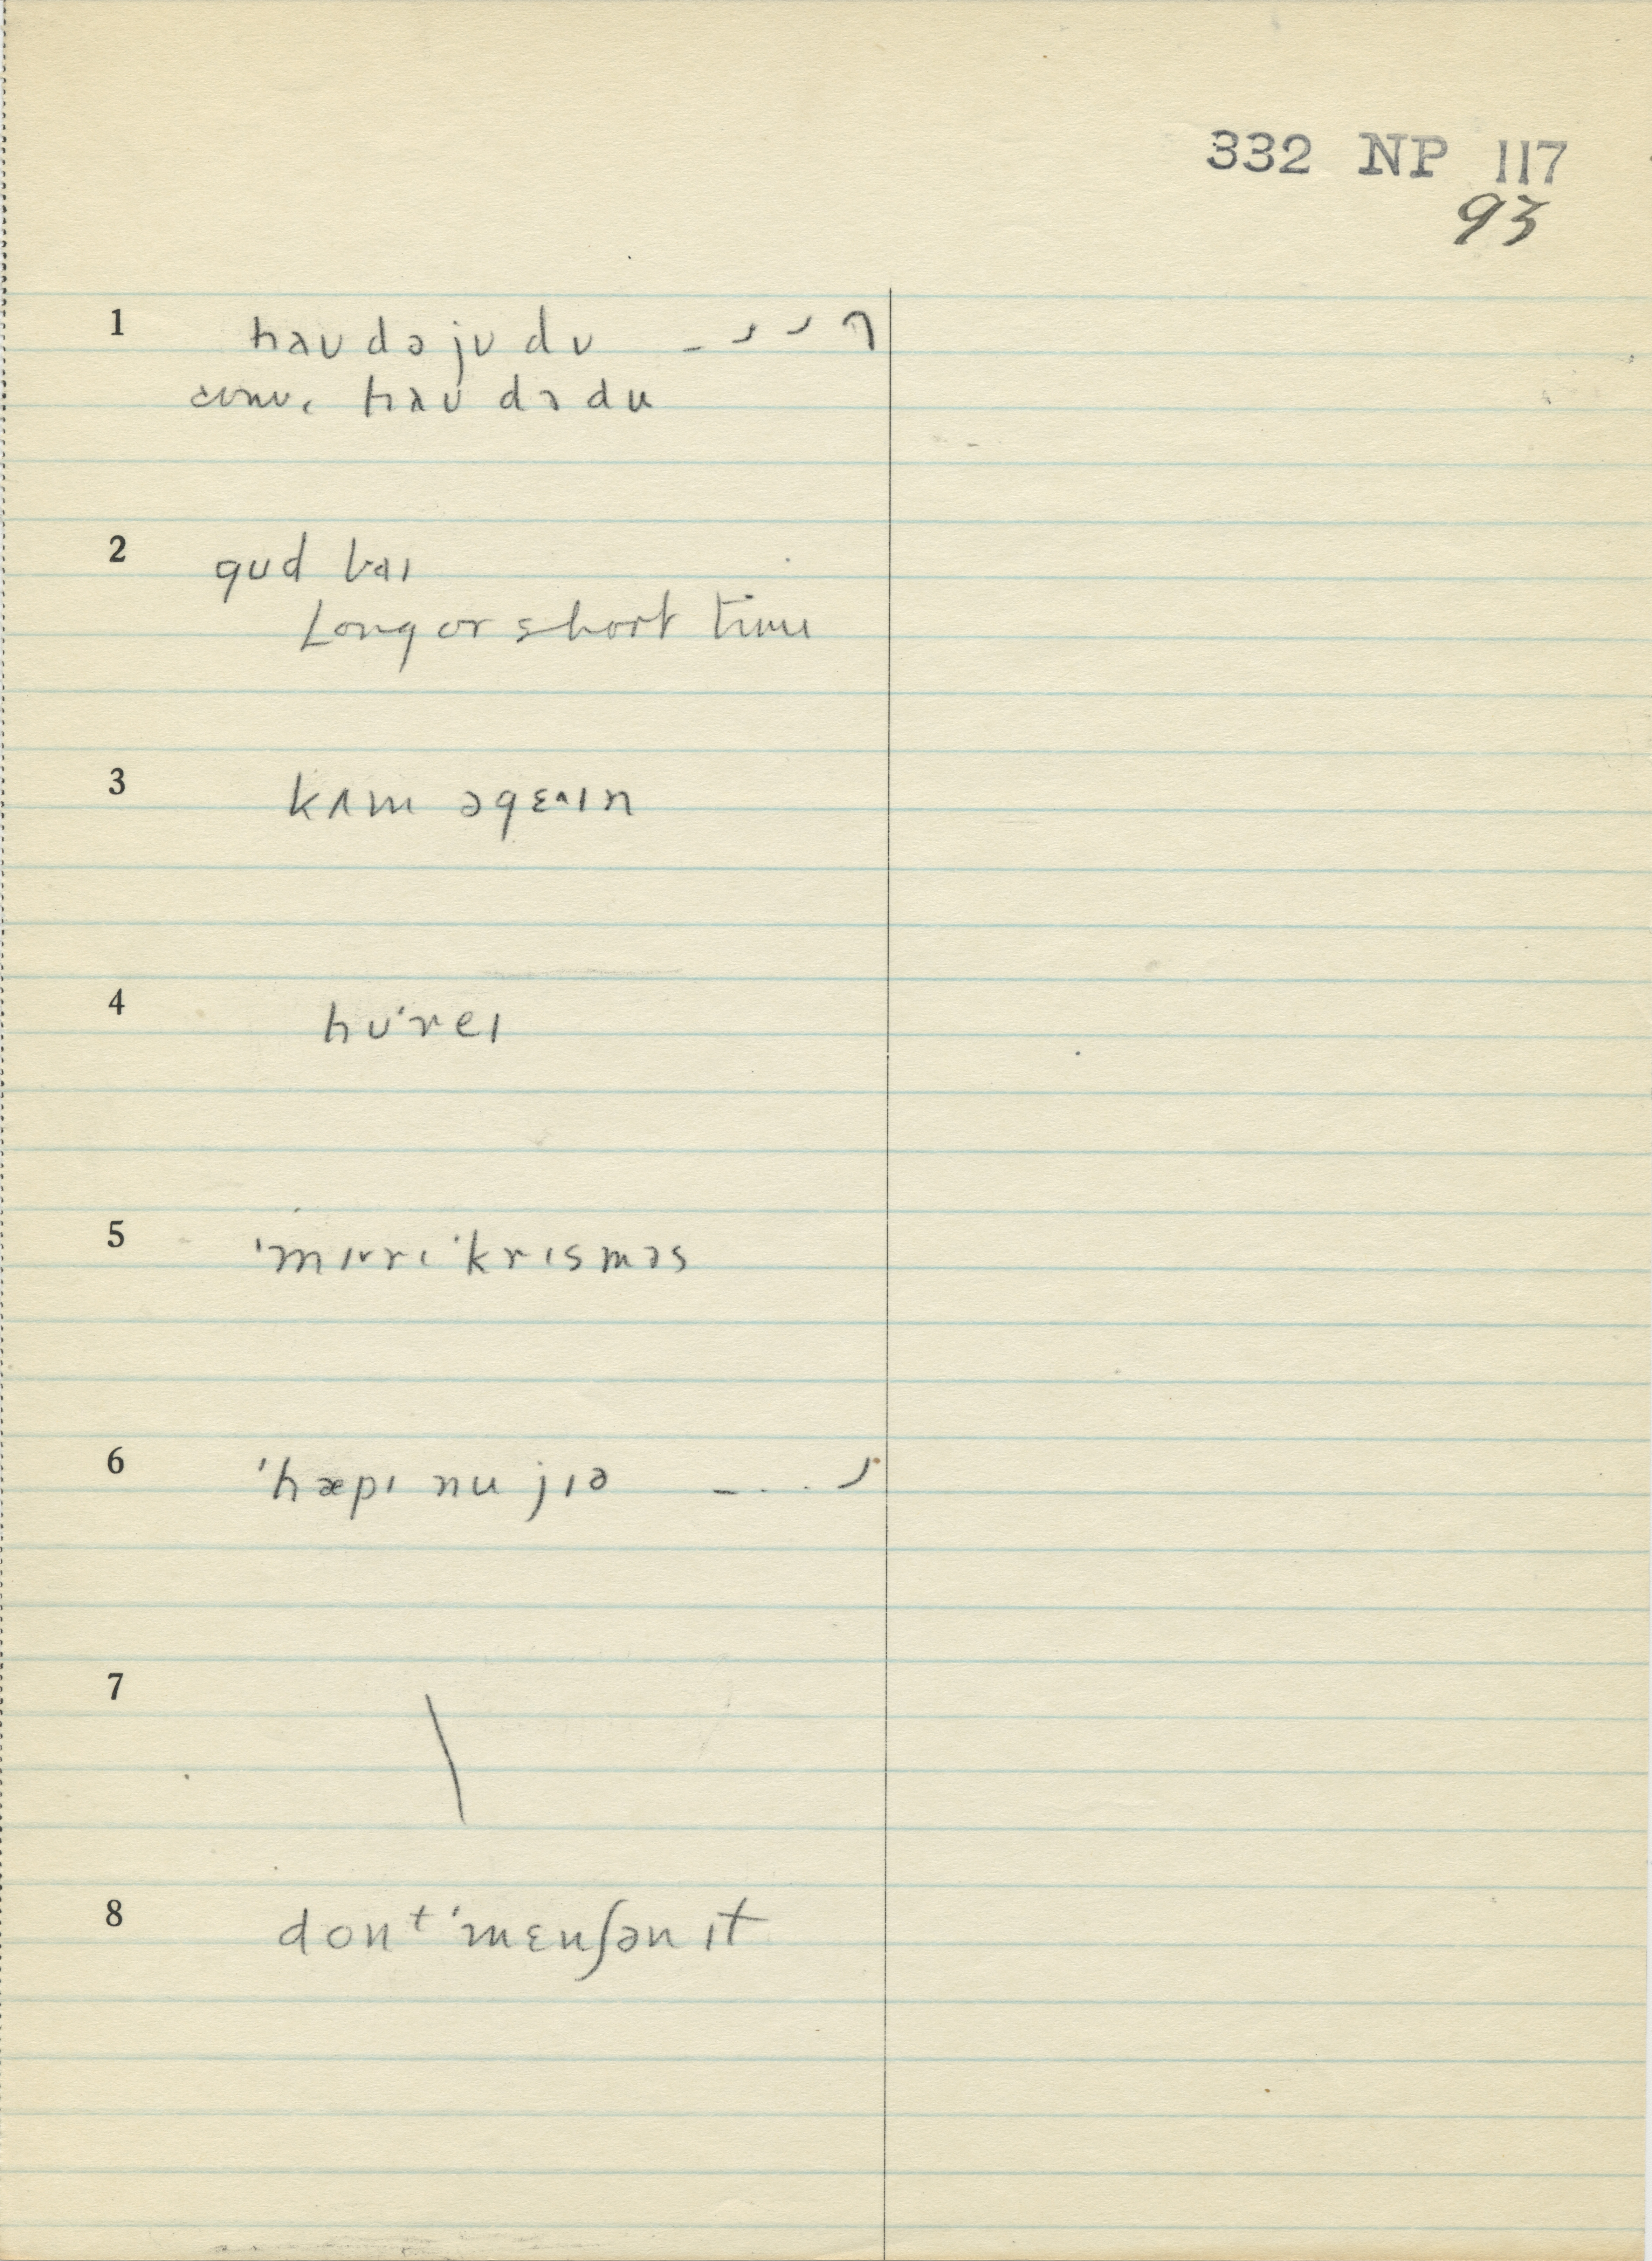 332 NP 117
93
1 haʊ də jʊ dʊ
conv. haʊ də du
2 gʊd baɪ
Long or short time
3 kʌm əgɛ^ɪn
4 hʊˈreɪ
5 ˈmɪrɪ ˈkrɪsməs
6 ˈhæpɪ nu jɪə
7
8 donᵗ ˈmɛnʃən ɪt